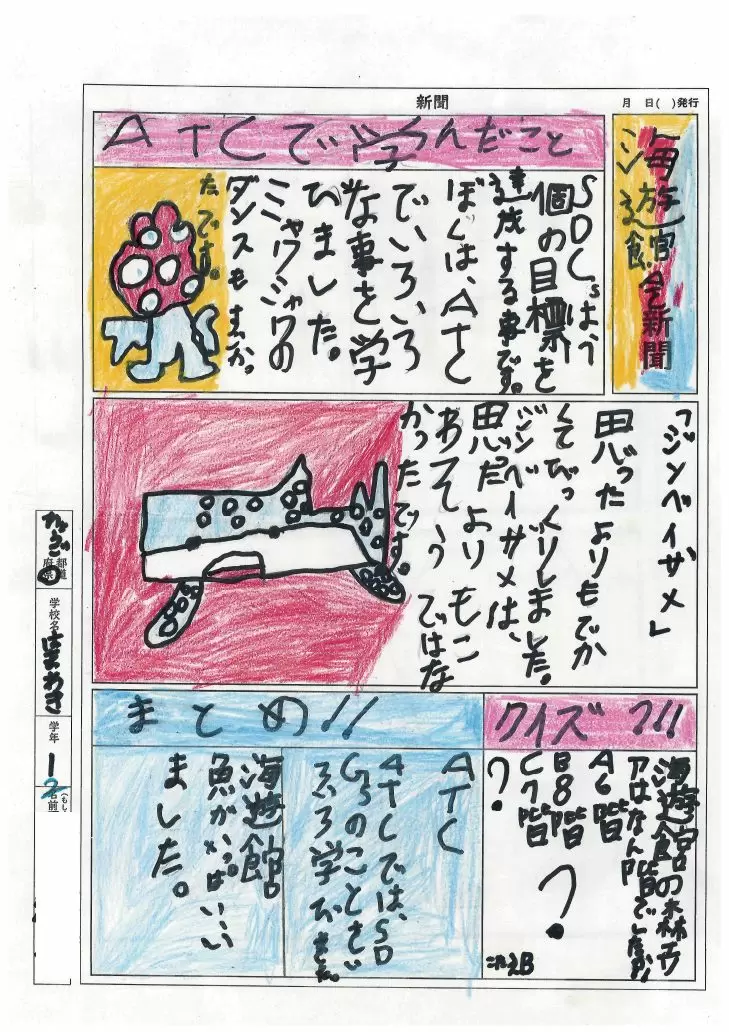 新聞
月 日( )発行
海遊館
新聞
ATCで学んだこと
SDGsは、
個の目標を
達成する事です。
ぼくは、ATC
でいろいろ
な事を学
びました。
ミャクミャクの
ダンスもすかっ
たです。
「ジンベイザメ」
思ったよりもでか
くてびっくりしました。
ジンベイザメは、
思ったよりもこ
わそうではな
かったです。
クイズ?!!
海遊館の森が
アはなん階でしたか?
A6階
B8階
C7階
?
?
こたえB
まとめ!!
ATC
ATCでは、SD
Gsのことをい
ろいろ学びました。
海遊館
魚がいっぱいい
ました。
都道
府県
学校名
はまわき
学年
1
2
名前